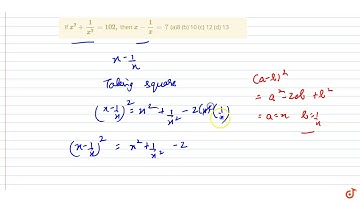 If x² + 1/x² = 102, then x − 1/x = ? (a)8 (b) 10 (c) 12 (d) 13
x - 1/x
Taking square
(x - 1/x)² = x² + 1/x² - 2(x)(1/x)
(x - 1/x)² = x² + 1/x² - 2
(a-b)²
= a² - 2ab + b²
= a=x b=1/x